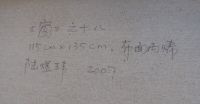 《窗》之十八
115cm×135cm. 布面丙烯
2007